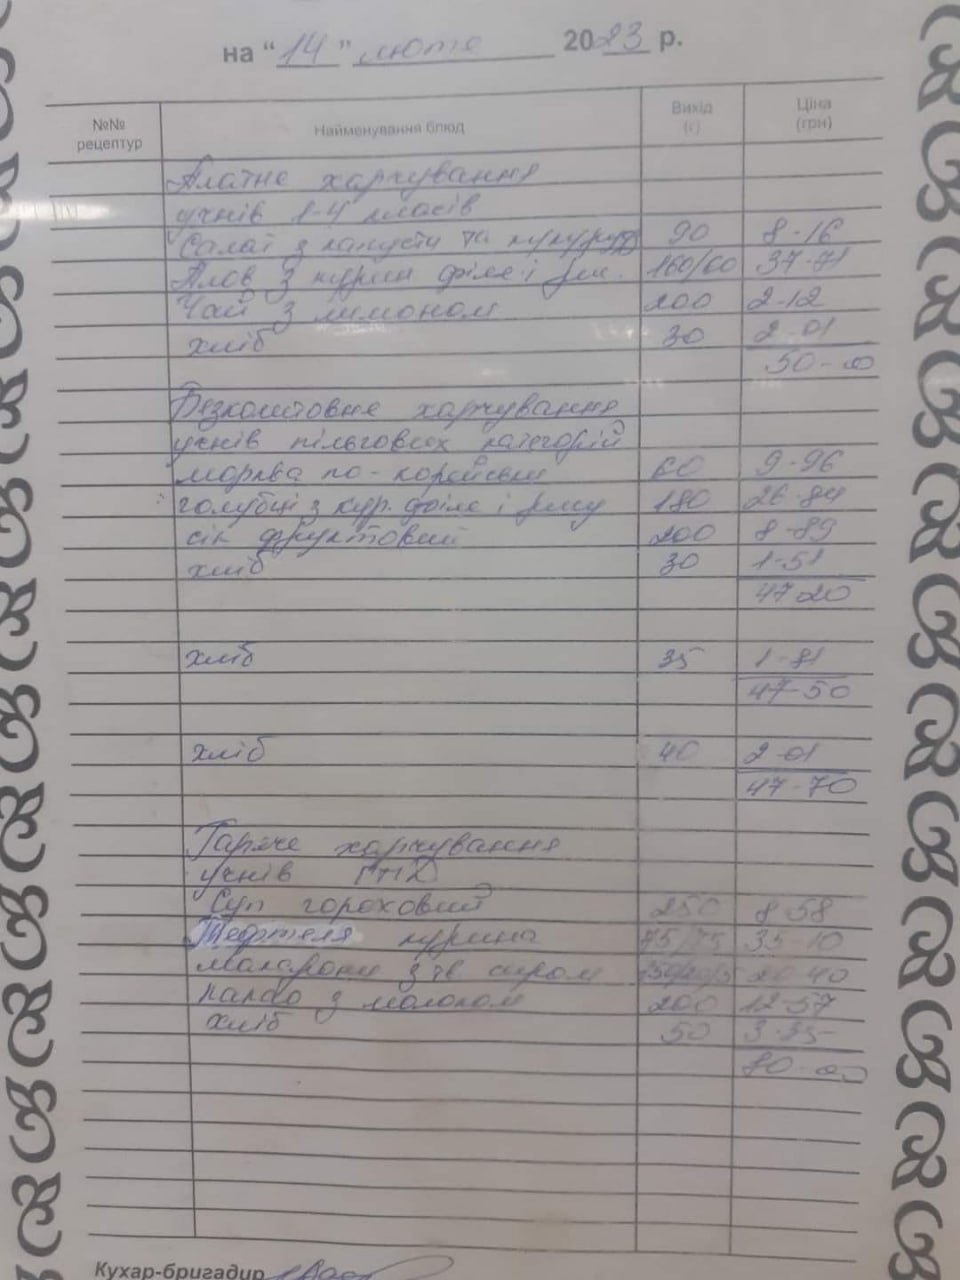 на "14" люте 2023 р.
№№ рецептур Найменування блюд Вихід (г) Ціна (грн)
Платне харчування
учнів 1-4 класів
Салат з капусти та кукурудз 90 8-16
Плов з курин філе і рис. 160/60 37-71
Чай з лимоном 200 2-12
хліб 30 2-01
50-00
Безкоштовне харчування
учнів пільгових категорій
морква по-корейськи 60 9-96
голубці з кур. філе і рису 180 26-84
сік фруктовий 200 8-89
хліб 30 1-51
47 20
хліб 35 1-81
47-50
хліб 40 2-01
47-70
Гаряче харчування
учнів ГПД
Суп гороховий 250 8-58
Тефтеля курина 75/75 35-10
макарони з тв сиром 20-40
какао з молоком 200 12-57
хліб 50 3-35
80-00
Кухар-бригадир